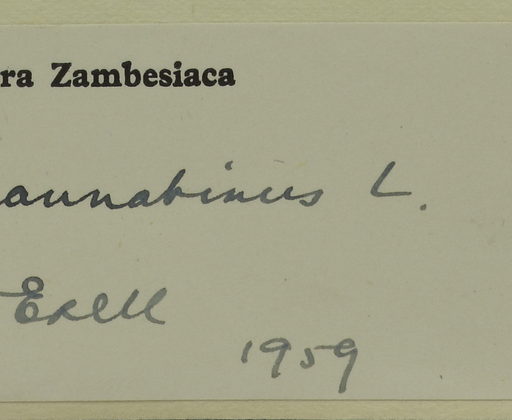 ra Zambesiaca
annabinus L.
Exell
1959